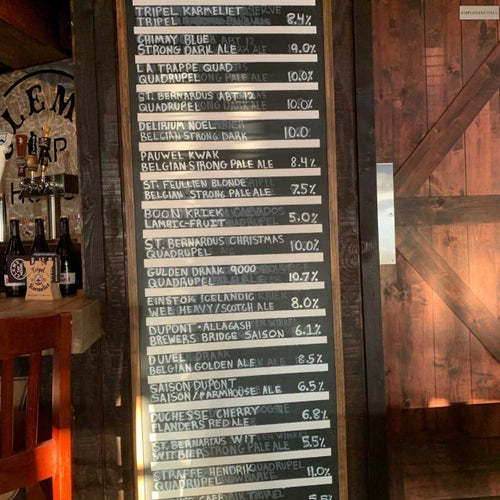 TRIPEL KARMELIET
TRIPEL 8.4%
CHIMAY BLUE
STRONG DARK ALE 9.0%
LA TRAPPE QUAD
QUADRUPEL 10.0%
ST. BERNARDUS ABT. 12
QUADRUPEL 10.0%
DELIRIUM NOEL
BELGIAN STRONG DARK 10.0
PAUWEL KWAK
BELGIAN STRONG PALE ALE 8.4%
ST. FEULLIEN BLONDE
BELGIAN STRONG PALE ALE 7.5%
BOON KRIEK
LAMBIC-FRUIT 5.0%
ST. BERNARDUS CHRISTMAS
QUADRUPEL 10.0%
GULDEN DRAAK 9000
QUADRUPEL 10.7%
EINSTOK ICELANDIC
WEE HEAVY/SCOTCH ALE 8.0%
DUPONT-ALLAGASH
BREWERS BRIDGE SAISON 6.1%
DUVEL
BELGIAN GOLDEN ALE 8.5%
SAISON DUPONT
SAISON/FARMHOUSE ALE 6.5%
DUCHESSE CHERRY
FLANDERS RED ALE 6.8%
ST. BERNARDUS WIT
WITBIER 5.5%
STRAFFE HENDRIK
QUADRUPEL 11.0%
EMPLOYEES ONLY
LEM
TAP
Tripel
Karmeliet